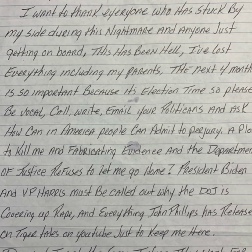 I want to thank everyone who has stuck by
my side during this Nightmare and anyone just
getting on board, This Has Been Hell, I've lost
Everything including my Parents. The next 4 month
is so important Because its Election Time so please
Be vocal, Call, write, Email your Politicans and Ask
How Can in America people Can Admit to perjury, A Plo
to Kill me and Fabricating Evidence and the Departmen
of Justice Refuses to let me go Home! President Biden
And V.P Harris must be called out why the DOJ is
Covering up Rape, and Everything John Phillips has Release
on Tiger takes on youtube Just to Keep me Here.